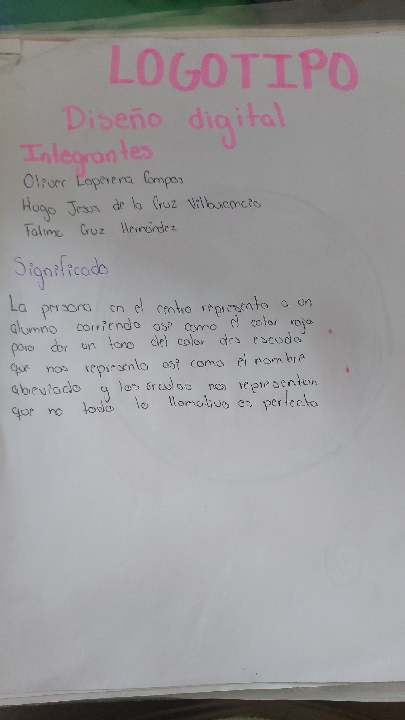 LOGOTIPO
Diseño digital
Integrantes
Oliver Loperena Campos
Hugo Jesus de la Cruz
Fatima Cruz Hernández
Significado
La persona en el centro representa a un
alumno corriendo asi como el color rojo
para dar un tono del color del escudo
que nos representa asi como el nombre
abreviado y los circulos nos representan
que no todo lo llamativo es perfecto